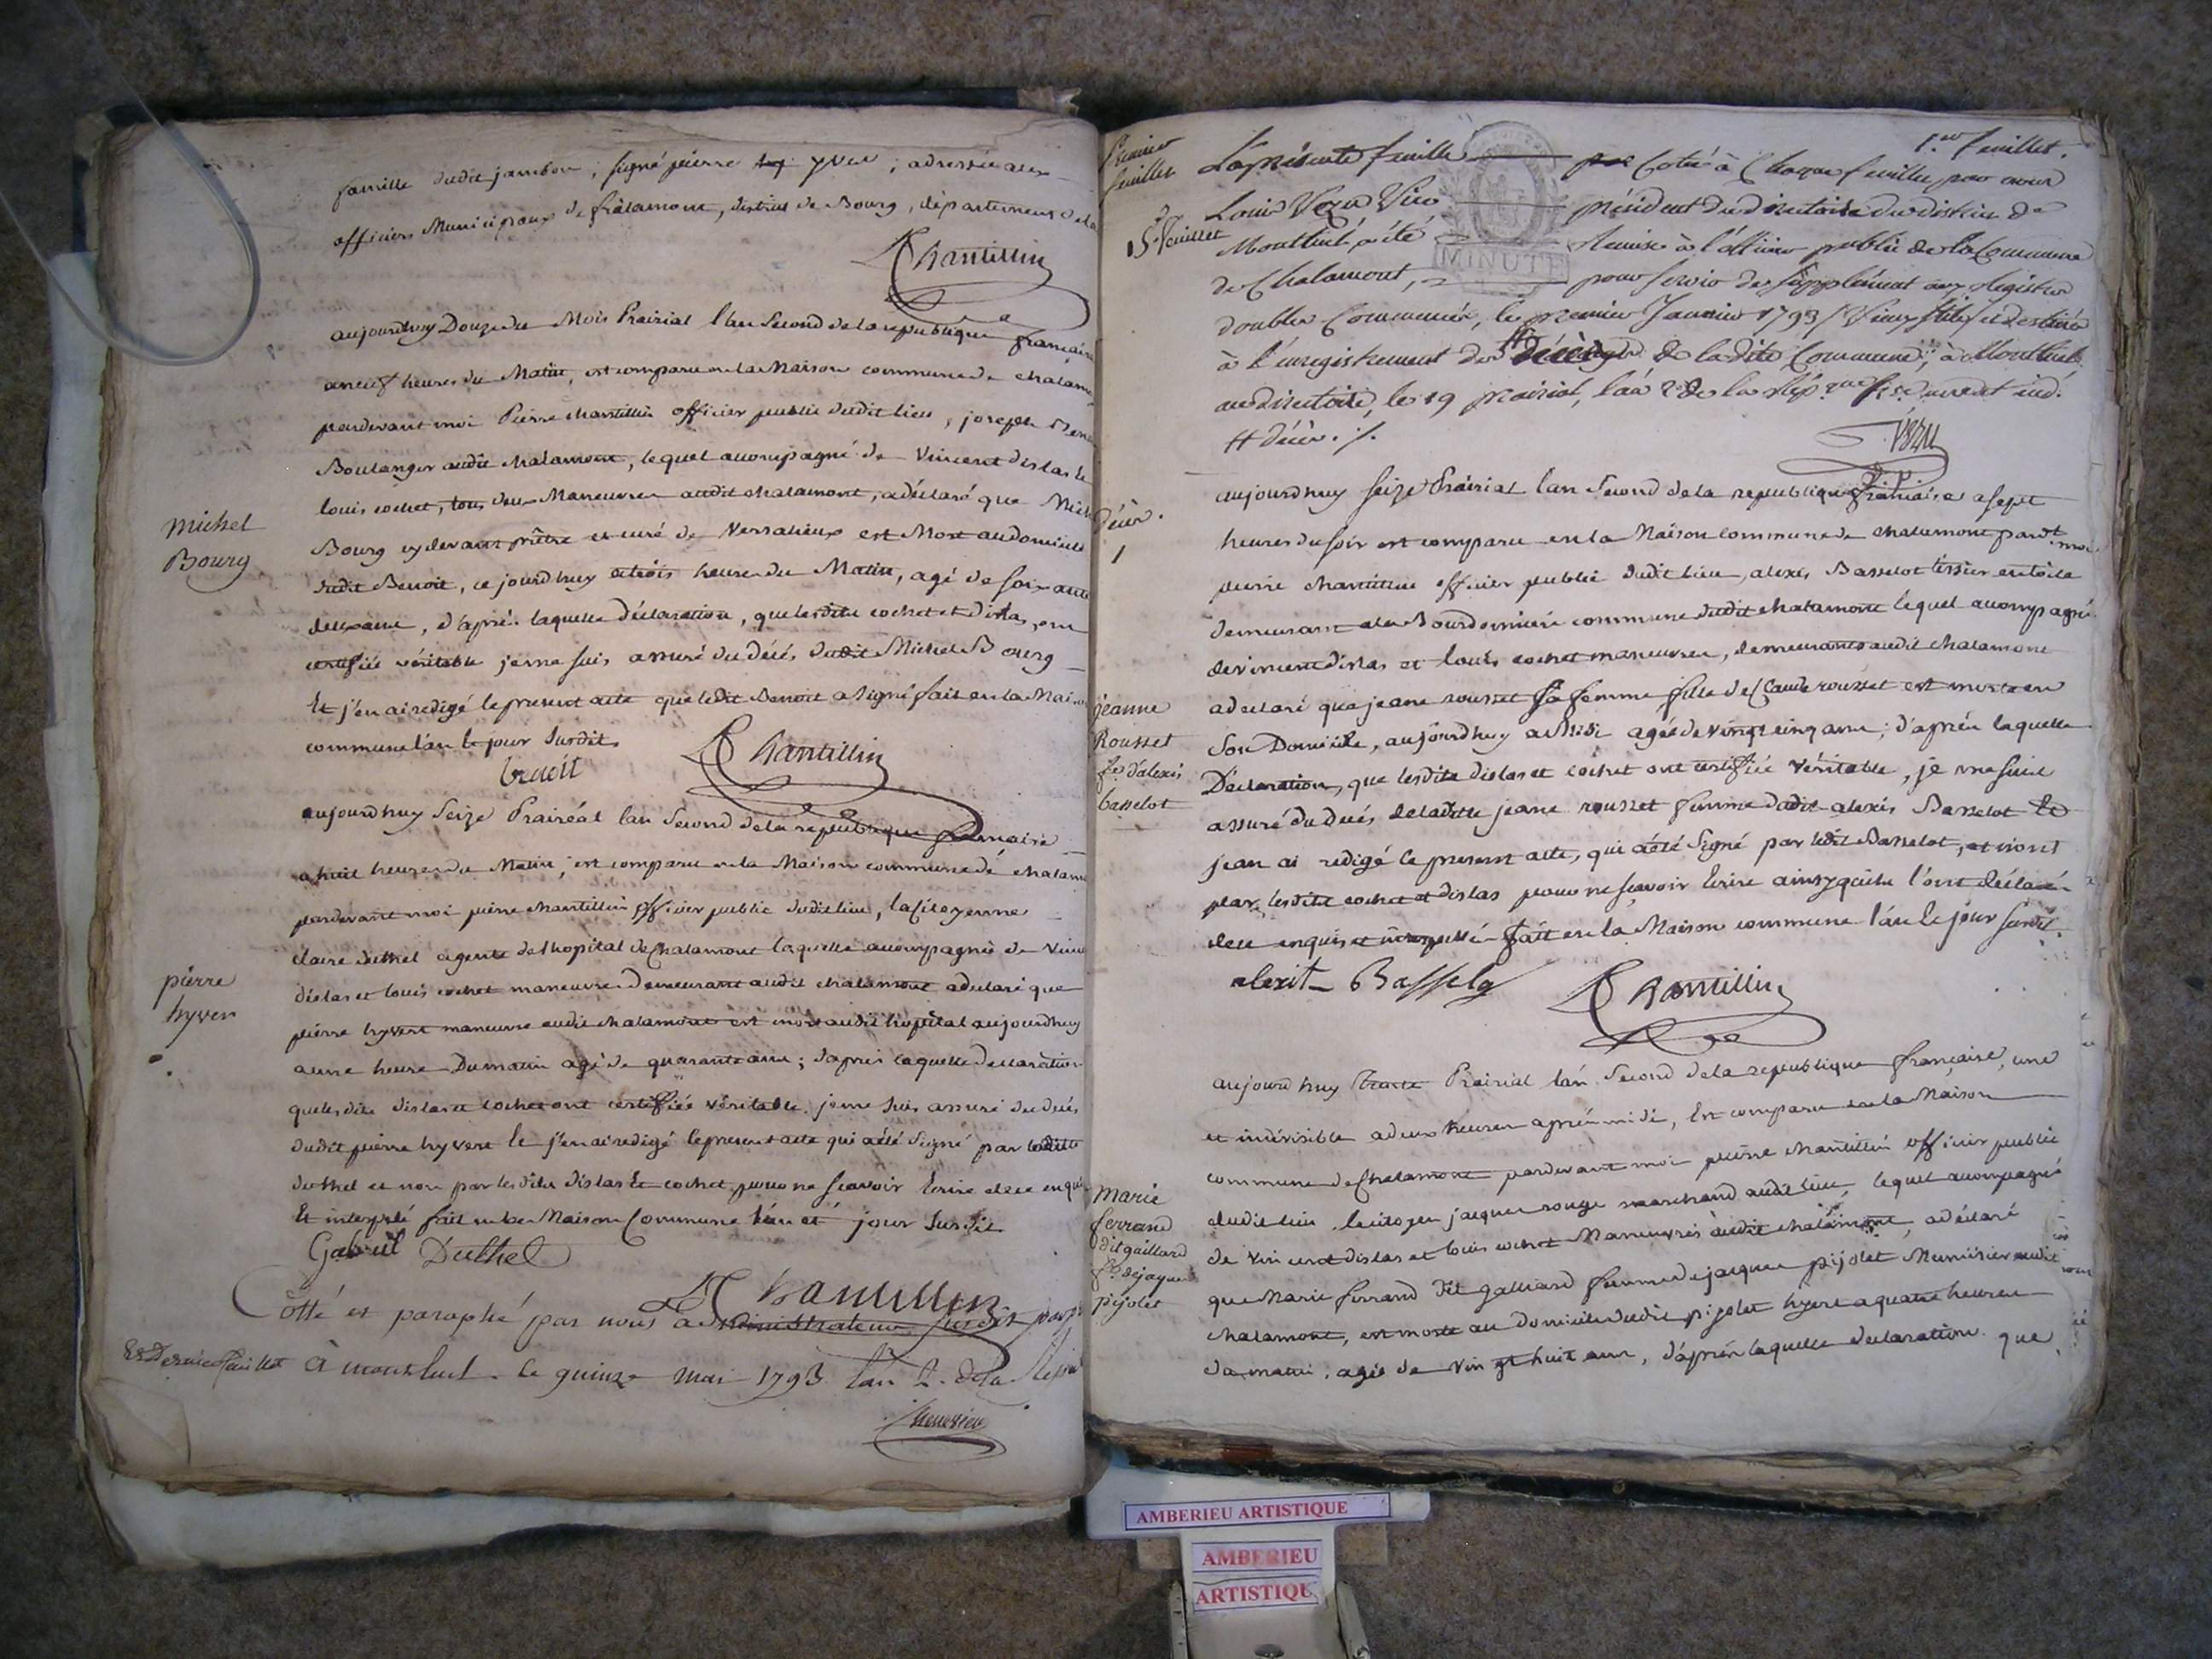 famille dudit jambon, signé pierre yver, adressée aux
officiers Municipaux de Chalamont, district de Bourg, département de la
Chantillin
aujourdhuy Douze du Mois Prairial l'an Second de la republique française
a neuf heures du Matin, est comparu en la Maison commune de chalamont
pardevant moi Pierre chantillin officier public dudit lieu, joseph Benoit
Boulanger audit chalamont, lequel accompagné de Vincent dislas Et
louis cochet, tous deux Maneuvres audit chalamont, a déclaré que Michel
Michel
Bourg
Bourg cy devant prêtre et curé de Versalieux est Mort au domicile
dudit Benoit, ce jourdhuy a trois heures du Matin, agé de soixante
deux ans, d'après laquelle déclaration, que lesdits cochet et dislas, ont
certifiée véritable je me suis assuré du décés dudit Michel Bourg
Et j'en ai redigé le present acte que ledit Benoit a signé fait en la Maison
commune l'an le jour Susdits
benoit
Chantillin
aujourdhuy Seize Prairéal l'an Second de la republique francaise
a huit heures du Matin, est comparu en la Maison commune de chalamont
pardevant moi pierre chantillin officier public dudit lieu, la citoyenne
claire duthel agente de l'hopital de Chalamont laquelle accompagnée de Vincent
pierre
hyver
dislas et louis cochet maneuvres Demeurant audit chalamont a declaré que
pierre hyvert maneuvre audit chalamont est mort audit hopital aujourdhuy
a une heure Du matin agé de quarante ans; d'apres laquelle declaration
que lesdits dislas et cochet ont certifiée véritable, je me suis assuré du décés
dudit pierre hyvert Et j'en ai redigé le present acte qui a été Signé par ladite
duthel et non par lesdits dislas Et cochet pour ne scavoir Ecrire de ce enquis
Et interpelé fait en la Maison Commune l'an et jour Susdit
Gabriel Duthel
Chantillin
Cotté et paraphé par nous administrateur susdit pour
Et Dernier feuillet à montluel le quinze mai 1793 l'an 2 de la Répub
Premier
feuillet
1.er feuillet.
La présente feuille Cotée à Chaque feuillet par nous
15.e feuillet
Louis Vezu Vice président du directoire du district de
Montluel, a été Remise à l'officier public de la Commune
MINUTE
de Chalamont, pour servir de Supplément aux Registres
doubles Commencés, le premier Janvier 1793 (Vieux stile) et destinés
à l'enregistrement des décès de la dite Commune; à Montluel
au directoire, le 19 prairial, l'an 2 de la Rép.que f.se une et ind.
# décès ./.
Vézu
décès.
1
aujourdhuy Seize Prairial l'an Second de la republique française a sept
heures du soir est comparu en la Maison commune de chalamont pardt moi
pierre chantillin officier public dudit lieu, alexis Basselot tissier en toile
demeurant a la Bourdonniere commune dudit chalamont lequel accompagné
de vincent dislas et louis cochet maneuvres, demeurants audit chalamont
jeanne
Rousset
fe d'alexis
basselot
a declaré que jeane rousset sa femme fille de Claude rousset est morte en
son Domicile, aujourdhuy a Midi agée de vingt cinq ans; d'après laquelle
Déclaration, que lesdits dislas et cochet ont certifiée véritable, je me suis
assuré du décés de ladite jeane rousset femme dudit alexis Basselot Et
j'ean ai redigé le present acte, qui a été Signé par ledit Basselot, et nont
par lesdits cochet et dislas pour ne scavoir Ecrire ainsy qu'ils l'ont déclaré
de ce enquis et interpellé fait en la Maison commune l'an Et jour Susdit.
alexit Basselo
Chantillin
aujourdhuy trente Prairial l'an Second de la republique française, une
et indivisible a deux heures après midi, Est comparu en la Maison
commune de Chalamont pardevant moi pierre chantillin officier public
Marie
ferrand
dit gaillard
fe de jaques
pijolet
dudit lieu le citoyen jacques rouge marchand audit lieu, lequel accompagné
de vincent dislas et louis cochet Maneuvres audit chalamont, a déclaré
que Marie ferrand dit galliard femme de jacques pijolet Menuisier audit
chalamont, est morte au domicile dudit pijolet hyere a quatre heures
du matin, agée de vingt huit ans, d'après laquelle declaration que
AMBERIEU ARTISTIQUE
AMBERIEU
ARTISTIQU